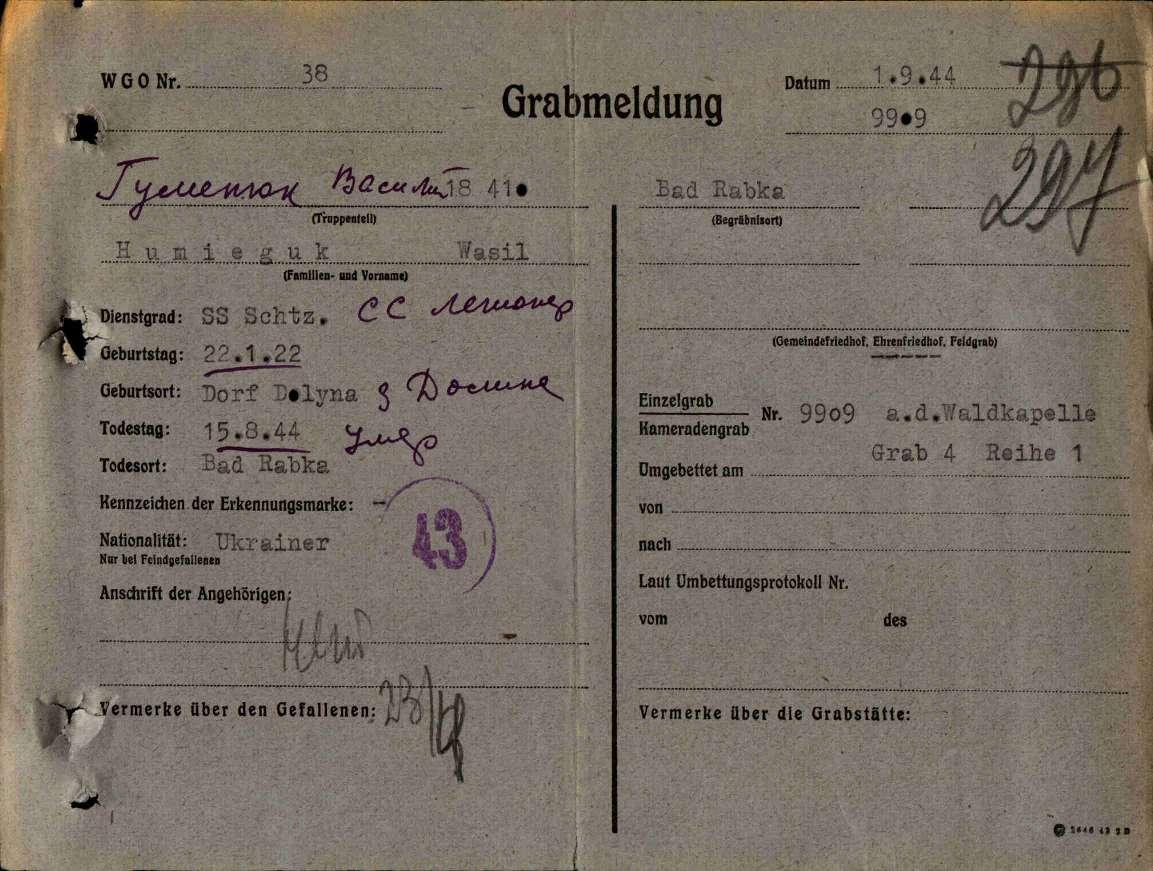 WGO Nr. 38
Grabmeldung
Datum 1.9.44
99•9
296
297
Гуменюк Василь 18 41•
(Truppenteil)
Humieguk Wasil
(Familien- und Vorname)
Dienstgrad: SS Schtz. СС
Geburtstag: 22.1.22
Geburtsort: Dorf D•lyna з Долине
Todestag: 15.8.44 умер
Todesort: Bad Rabka
Kennzeichen der Erkennungsmarke: –
43
Nationalität: Ukrainer
Nur bei Feindgefallenen
Anschrift der Angehörigen:
Vermerke über den Gefallenen:
Bad Rabka
(Begräbnisort)
(Gemeindefriedhof, Ehrenfriedhof, Feldgrab)
Einzelgrab
Kameradengrab
Nr. 9909 a.d.Waldkapelle
Grab 4 Reihe 1
Umgebettet am
von
nach
Laut Umbettungsprotokoll Nr.
vom des
Vermerke über die Grabstätte: